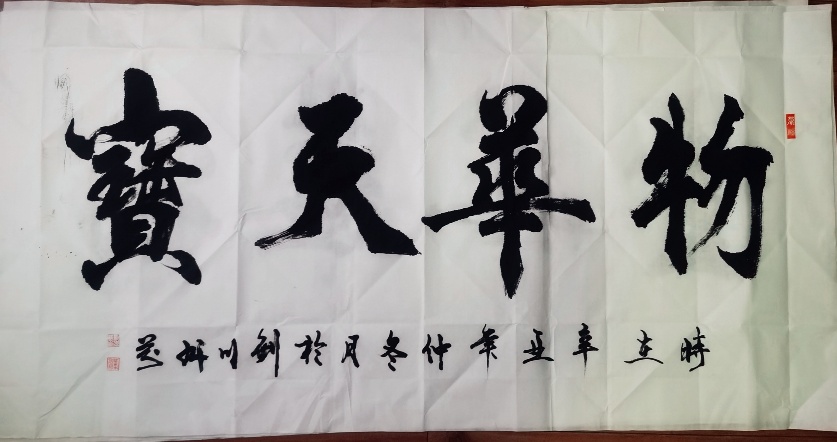 物華天寶
時在辛丑年仲冬月於劍川